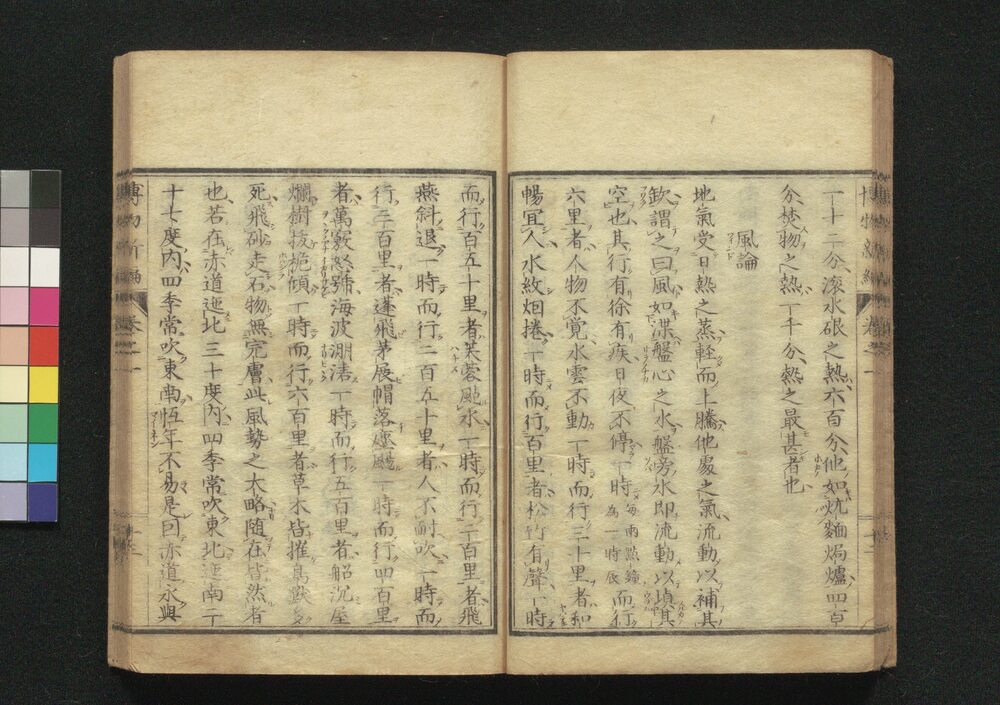 一十二分滾水限之熱六百分他如炕麵焗爐四百
分焚物之熱一千分熱之最甚者也
風論
地氣受日熱之蒸軽而上騰他處之氣流動以補其
欽謂之曰風如渫盤心之水盤旁水即流動以塡其
空也其行有徐有疾日夜不停一時每兩點鐘為一時辰而行
六里者人物不覚水雲不動一時而行三十里者和
暢宜人水紋烟捲一時而行百里者松竹有聲一時
而行百五十里者芙蓉颭水一時而行二百里者飛
燕斜退一時而行二百五十里者人不耐吹一時而
行三百里者蓬飛茅展帽落塵颺一時而行四百里
者萬竅怒號海波潮湧一時而行五百里者船沉屋
爛樹拔桅傾一時而行六百里者草木皆摧鳥獸多
死飛砂走石物無完膚此風勢之大略随在皆然者
也若在赤道迤北三十度內四季常吹東北迤南二
十七度內四季常吹東南恆年不易是因赤道永與
博物新編
卷之一